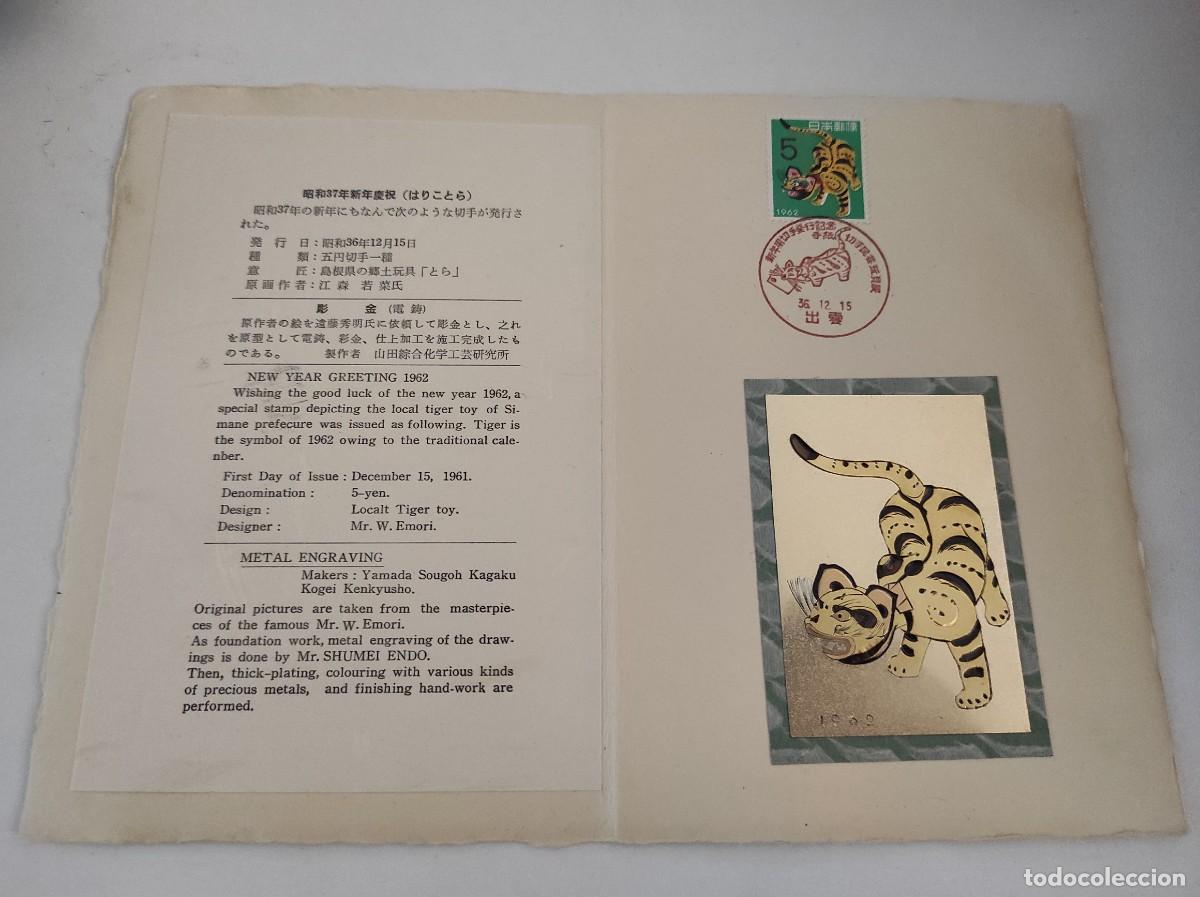 昭和37年新年慶祝（はりことら）
昭和37年の新年にもなんで次のような切手が発行さ
れた。
発行日：昭和36年12月15日
種類：五円切手一種
意匠：島根県の郷土玩具「とら」
原画作者：江森若菜氏
彫金（電鋳）
原作者の絵を遠藤秀明氏に依頼して彫金とし、之れ
を原型として電鋳、彩金、仕上加工を施工完成したも
のである。 製作者 山田綜合化学工芸研究所
NEW YEAR GREETING 1962
Wishing the good luck of the new year 1962, a
special stamp depicting the local tiger toy of Si-
mane prefecure was issued as following. Tiger is
the symbol of 1962 owing to the traditional cale-
nber.
First Day of Issue : December 15, 1961.
Denomination : 5-yen.
Design : Localt Tiger toy.
Designer : Mr. W. Emori.
METAL ENGRAVING
Makers : Yamada Sougoh Kagaku
Kogei Kenkyusho.
Original pictures are taken from the masterpie-
ces of the famous Mr. W. Emori.
As foundation work, metal engraving of the draw-
ings is done by Mr. SHUMEI ENDO.
Then, thick-plating, colouring with various kinds
of precious metals, and finishing hand-work are
performed.
日本郵便
5
1962
新年用切手発行記念
切手民芸玩具展
36. 12. 15
出雲
1962
todocoleccion